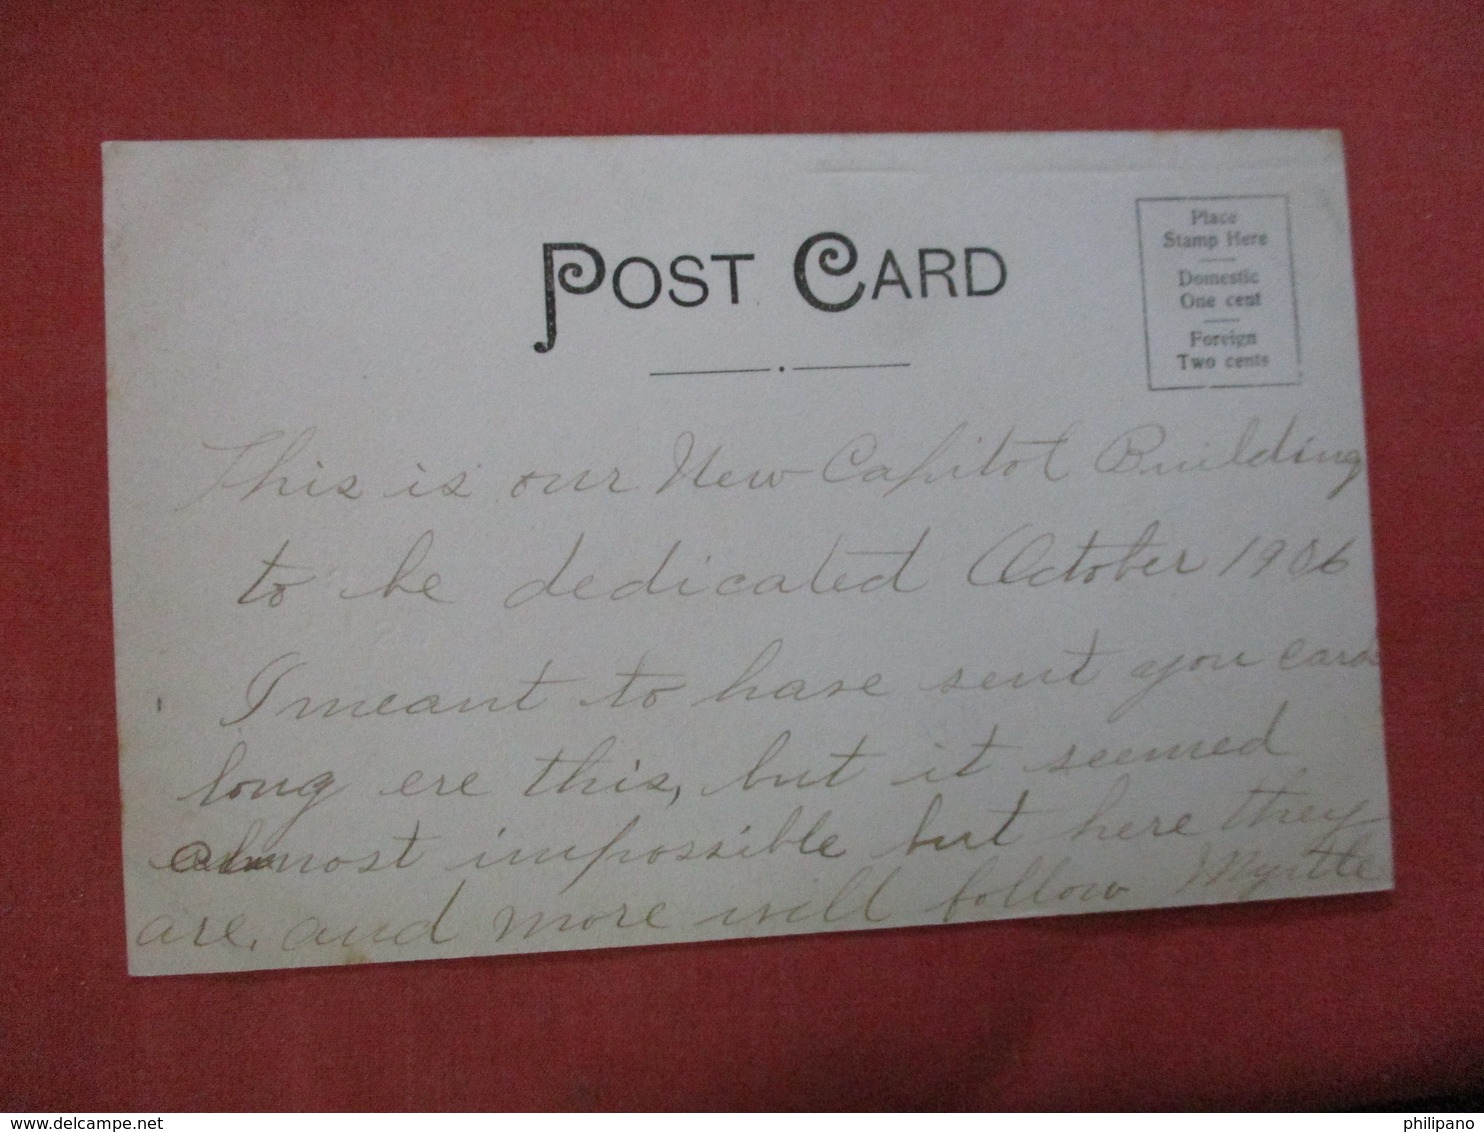 POST CARD
Place
Stamp Here
Domestic
One cent
Foreign
Two cents
This is our New Capitol Building
to be dedicated October 1906
I meant to have sent you card
long ere this, but it seemed
almost impossible but here they
are, and more will follow Myrtle
www.delcampe.net
philipano